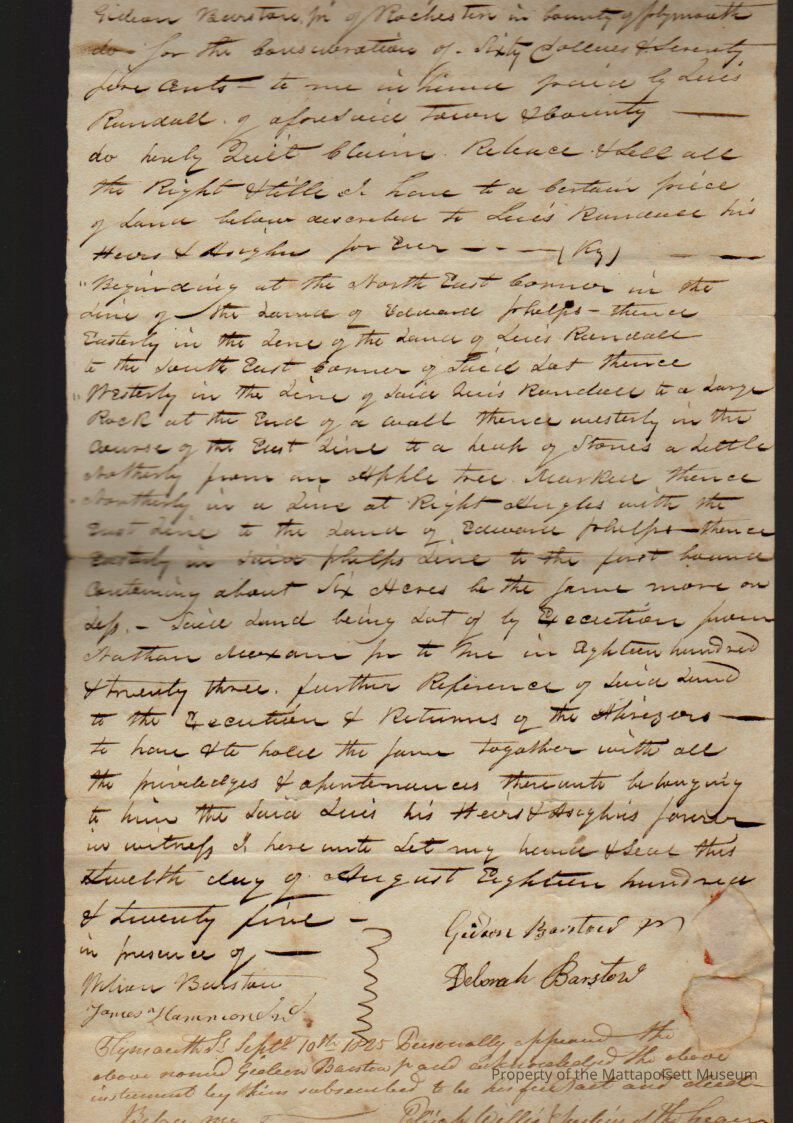 Gideon Barstow Jr of Rochester in County of plymouth
do for the Consideration of Sixty Dollars & Seventy
five Cents - to me in hand paid by Luis
Randall of aforesaid Town & County
do herely Quit Claim Release & Sell all
the Right & title I have to a Certain piece
of Land below described to Luis Randall his
Heirs & Asighns for Ever
"Beginding at the North East Corner in the
Line of the Land of Edward phelps - thence
Easterly in the Line of the Land of Luis Randall
to the South East Corner of Said Lot thence
Westerly in the Line of Said Luis Randall to a Large
Rock at the End of a wall thence westerly in the
Course of the East Line to a heap of Stones a Little
Northerly from an Apple tree Marked thence
Northerly in a Line at Right Angles with the
East Line to the Land of Edward phelps thence
Easterly in Said phelps Line to the first bound
Contening about Six Acres be the same more or
Less. - Said Land being Sat of by Execution from
Nathan Mexam Jr to me in Eighteen hundred
& twenty three. further Reference of Said Land
to the Execution & Returns of the Aprizers
to have & to hold the same together with all
the priviledges & apentenances thereunto belonging
to him the Said Luis his Heirs & Asighns forever
in witness I here unto Set my hand & Seal this
twelth day of August Eighteen hundred
& twenty five -
in presence of
Gideon Barstow Jr
Deborah Barstow
Wilson Barstow
James Hammond 2nd
Plymouth Ss Septr 10th 1825 Personally appeared the
above named Gideon Barstow Jr and acknowledged the above
instrument by him subscribed to be his free act and deed -
Before me
Property of the Mattapoisett Museum